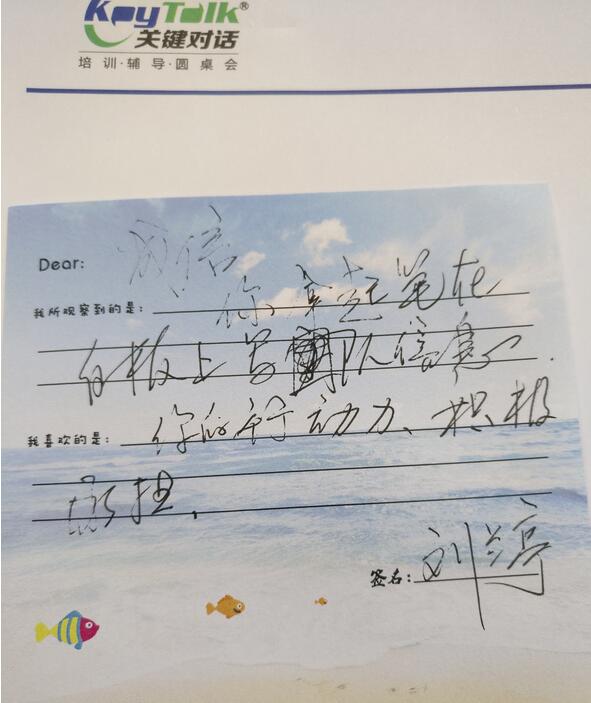 KeyTalk®
关键对话
培训·辅导·圆桌会
Dear: 成信
我所观察到的是: 你拿起笔在
白板上写团队信息.
我喜欢的是: 你的行动力、积极
承担.
签名: 刘兰亭